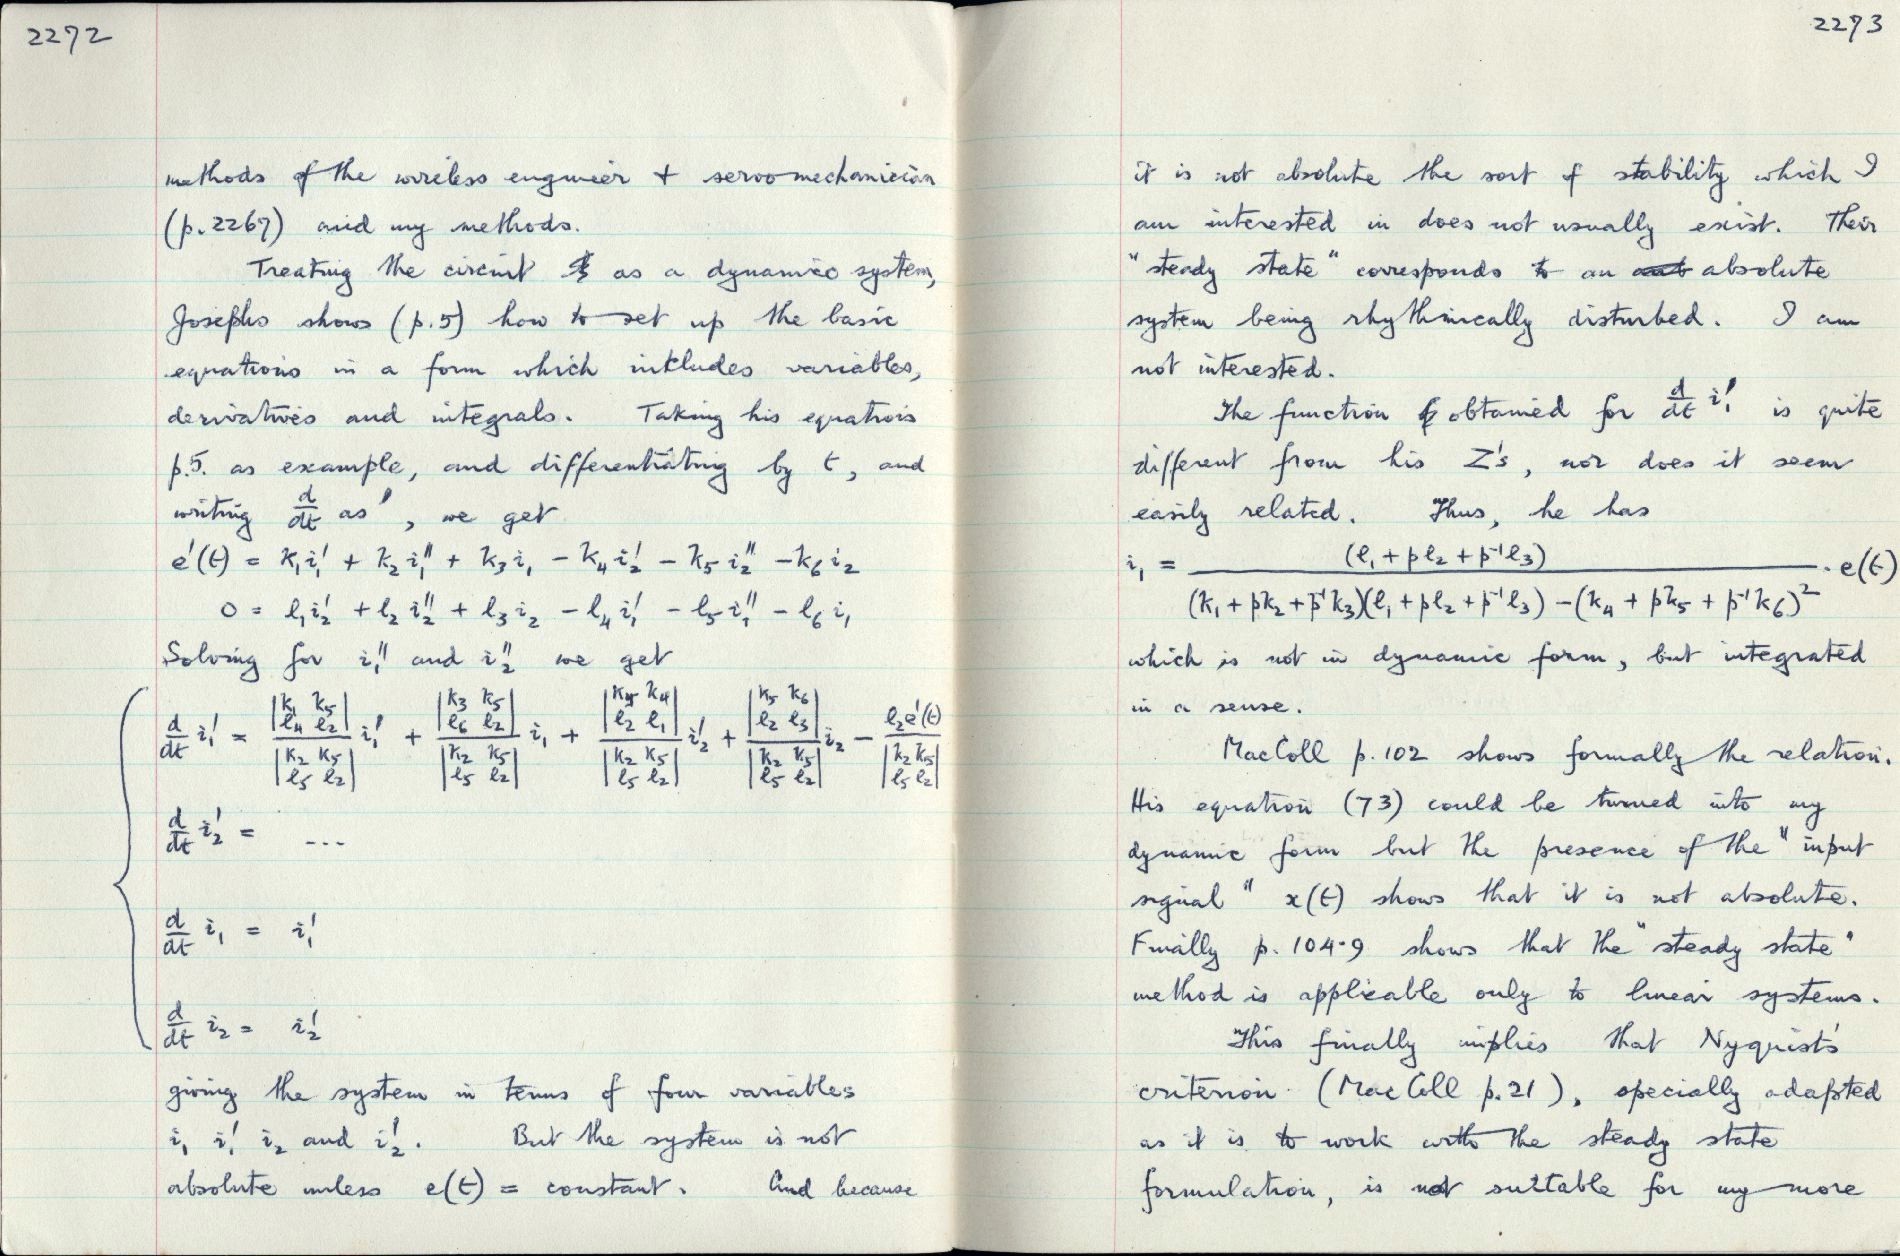 2272
methods of the wireless engineer + servo-mechanician
(p. 2267) and my methods.
Treating the circuit as a dynamic system,
Josephs shows (p. 5) how to set up the basic
equations in a form which includes variables,
derivatives and integrals. Taking his equations
p.5. as example, and differentiating by t, and
writing d/dt as ′, we get
e′(t) = k₁i₁′ + k₂i₁″ + k₃i₁ − k₄i₂′ − k₅i₂″ − k₆i₂
0 = l₁i₂′ + l₂i₂″ + l₃i₂ − l₄i₁′ − l₅i₁″ − l₆i₁
Solving for i₁″ and i₂″ we get
d/dt i₁′ = |k₁ k₅; l₄ l₂| / |k₂ k₅; l₅ l₂| i₁′ + |k₃ k₅; l₆ l₂| / |k₂ k₅; l₅ l₂| i₁ + |k₅ k₄; l₂ l₁| / |k₂ k₅; l₅ l₂| i₂′ + |k₅ k₆; l₂ l₃| / |k₂ k₅; l₅ l₂| i₂ − l₂e′(t) / |k₂ k₅; l₅ l₂|
d/dt i₂′ = ---
d/dt i₁ = i₁′
d/dt i₂ = i₂′
giving the system in terms of four variables
i₁ i₁′ i₂ and i₂′. But the system is not
absolute unless e(t) = constant. And because
2273
it is not absolute the sort of stability which I
am interested in does not usually exist. Their
"steady state" corresponds to an absolute
system being rhythmically disturbed. I am
not interested.
The function obtained for d/dt i₁′ is quite
different from his Z's, nor does it seem
easily related. Thus, he has
i₁ = (l₁ + pl₂ + p⁻¹l₃) / (k₁ + pk₂ + p⁻¹k₃)(l₁ + pl₂ + p⁻¹l₃) − (k₄ + pk₅ + p⁻¹k₆)² . e(t)
which is not in dynamic form, but integrated
in a sense.
MacColl p. 102 shows formally the relation.
His equation (73) could be turned into my
dynamic form but the presence of the "input
signal" x(t) shows that it is not absolute.
Finally p. 104-9 shows that the "steady state"
method is applicable only to linear systems.
This finally implies that Nyquist's
criterion (MacColl p. 21), specially adapted
as it is to work with the steady state
formulation, is not suitable for my more